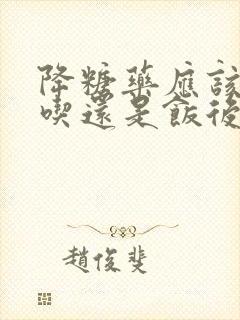 降糖藥應該
喫還是飯後
趙俊斐